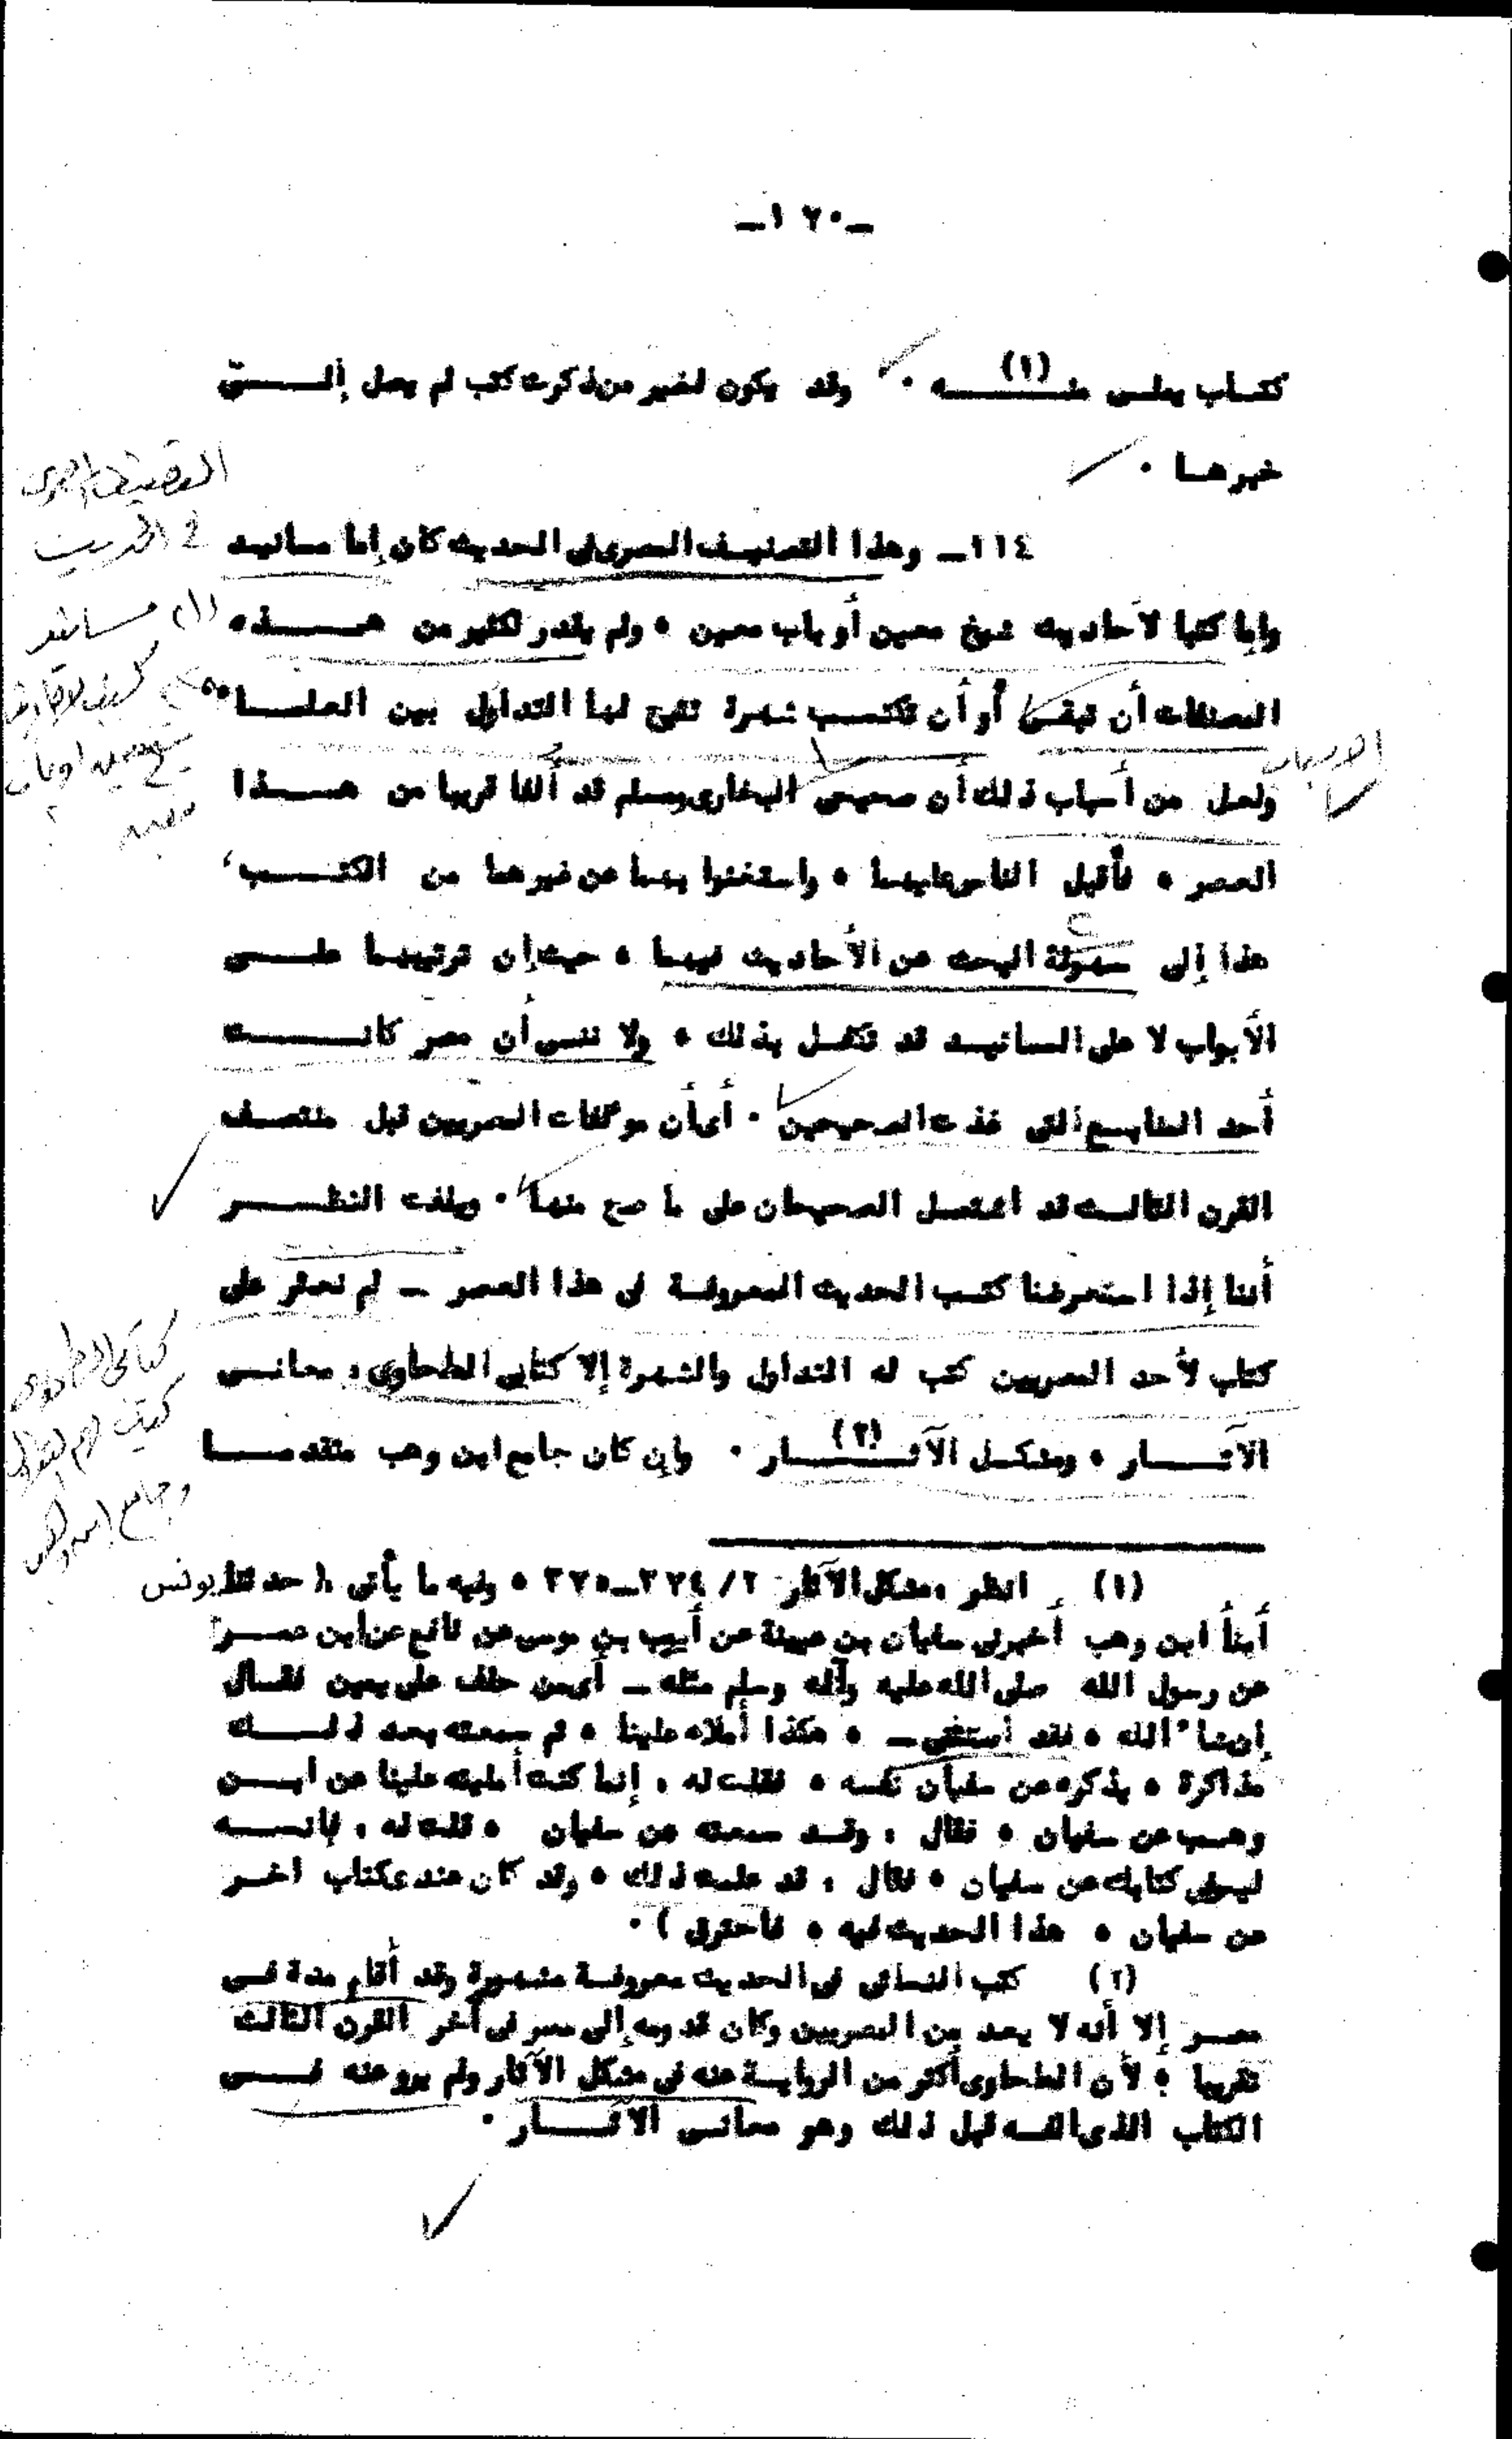 ـ١٢٠ـ
كتاب يملى منه (١) ٠ وقد يكون لغير من ذكرت كتب لم يصل إلىّ
خبرها ٠
١١٤ـ وهذا التصنيف المصرى فى الحديث كان إما مسانيد
وإما كتبا لأحاديث شيخ معين أو باب معين ، ولم يقدر لكثير من هذه
المصنفات أن تبقى أو أن تكتسب شهرة تتيح لها التداول بين العلماء
ولعل من أسباب ذلك أن صحيحى البخارى ومسلم قد ألفا قريبا من هذا
العصر ، فأقبل الناس عليهما ، واستغنوا بهما عن غيرهما من الكتب ،
هذا إلى سهولة البحث عن الأحاديث فيهما ، حيث إن ترتيبهما على
الأبواب لا على المسانيد قد تكفل بذلك ، ولا ننسى أن مصر كانت
أحد المنابع التى غذت الصحيحين ٠ أى أن مؤلفات المصريين قبل منتصف
القرن الثالث قد اشتمل الصحيحان على ما صح منها ٠ ويلفت النظر
أننا إذا استعرضنا كتب الحديث المعروفة فى هذا العصر ـ لم نعثر على
كتاب لأحد المصريين كتب له التداول والشهرة إلا كتابى الطحاوى ، معانى
الآثار ، ومشكل الآثار (٢) ٠ وإن كان جامع ابن وهب متقدما
(١) انظر ، مشكل الآثار ٢/ ٣٧٤ـ٣٧٥ ، وفيه ما يأتى ( حدثنا يونس
أنبأ ابن وهب أخبرنى سفيان بن عيينة عن أيوب بن موسى عن نافع عن ابن عمر
عن رسول الله صلى الله عليه وآله وسلم مثله ـ أى من حلف على يمين فقال
إن شاء الله ، فقد استثنى ـ ، هكذا أملاه علينا ، ثم سمعته بعد ذلك
مذاكرة ، يذكره عن سفيان نفسه ، فقلت له ، إنما كنت أمليته علينا عن ابن
وهب عن سفيان ، فقال ، وقد سمعته من سفيان ، قلت له ، فإنه
ليس فى كتابك عن سفيان ، فقال ، قد علمت ذلك ، وقد كان عندى كتاب اخر
عن سفيان ، هذا الحديث فيه ، فاحترق ) ٠
(٢) كتب النسائى فى الحديث معروفة مشهورة وقد أقام مدة فى
مصر إلا أنه لا يعد من المصريين وكان قدومه إلى مصر فى آخر القرن الثالث
تقريبا ؛ لأن الطحاوى أكثر من الرواية عنه فى مشكل الآثار ولم يرو عنه فى
الكتاب الذى الفه قبل ذلك وهو معانى الآثار ٠
التصنيف المصرى
فى الحديث
(١) مسانيد
شيخ معين او باب
معين
الاسباب
كتابى الطحاوى
وجامع ابن وهب